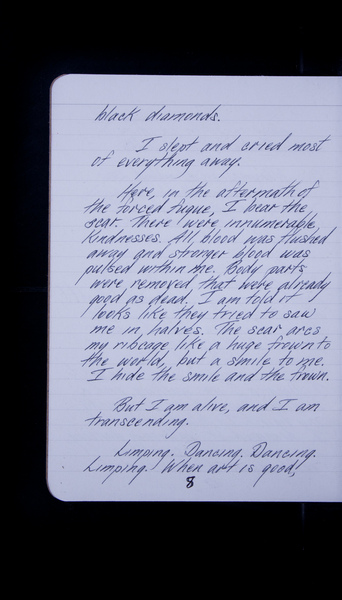 black diamonds.
I slept and cried most
of everything away.
Here, in the aftermath of
the forced fugue, I bear the
scar. There were innumerable
kindnesses. All blood was flushed
away and stronger blood was
pulsed within me. Body parts
were removed that were already
good as dead. I am told it
looks like they tried to saw
me in halves. The scar arcs
my ribcage like a huge frown to
the world, but a smile to me.
I hide the smile and the frown.
But I am alive, and I am
transcending.
Limping. Dancing. Dancing.
Limping. When art is good,
8